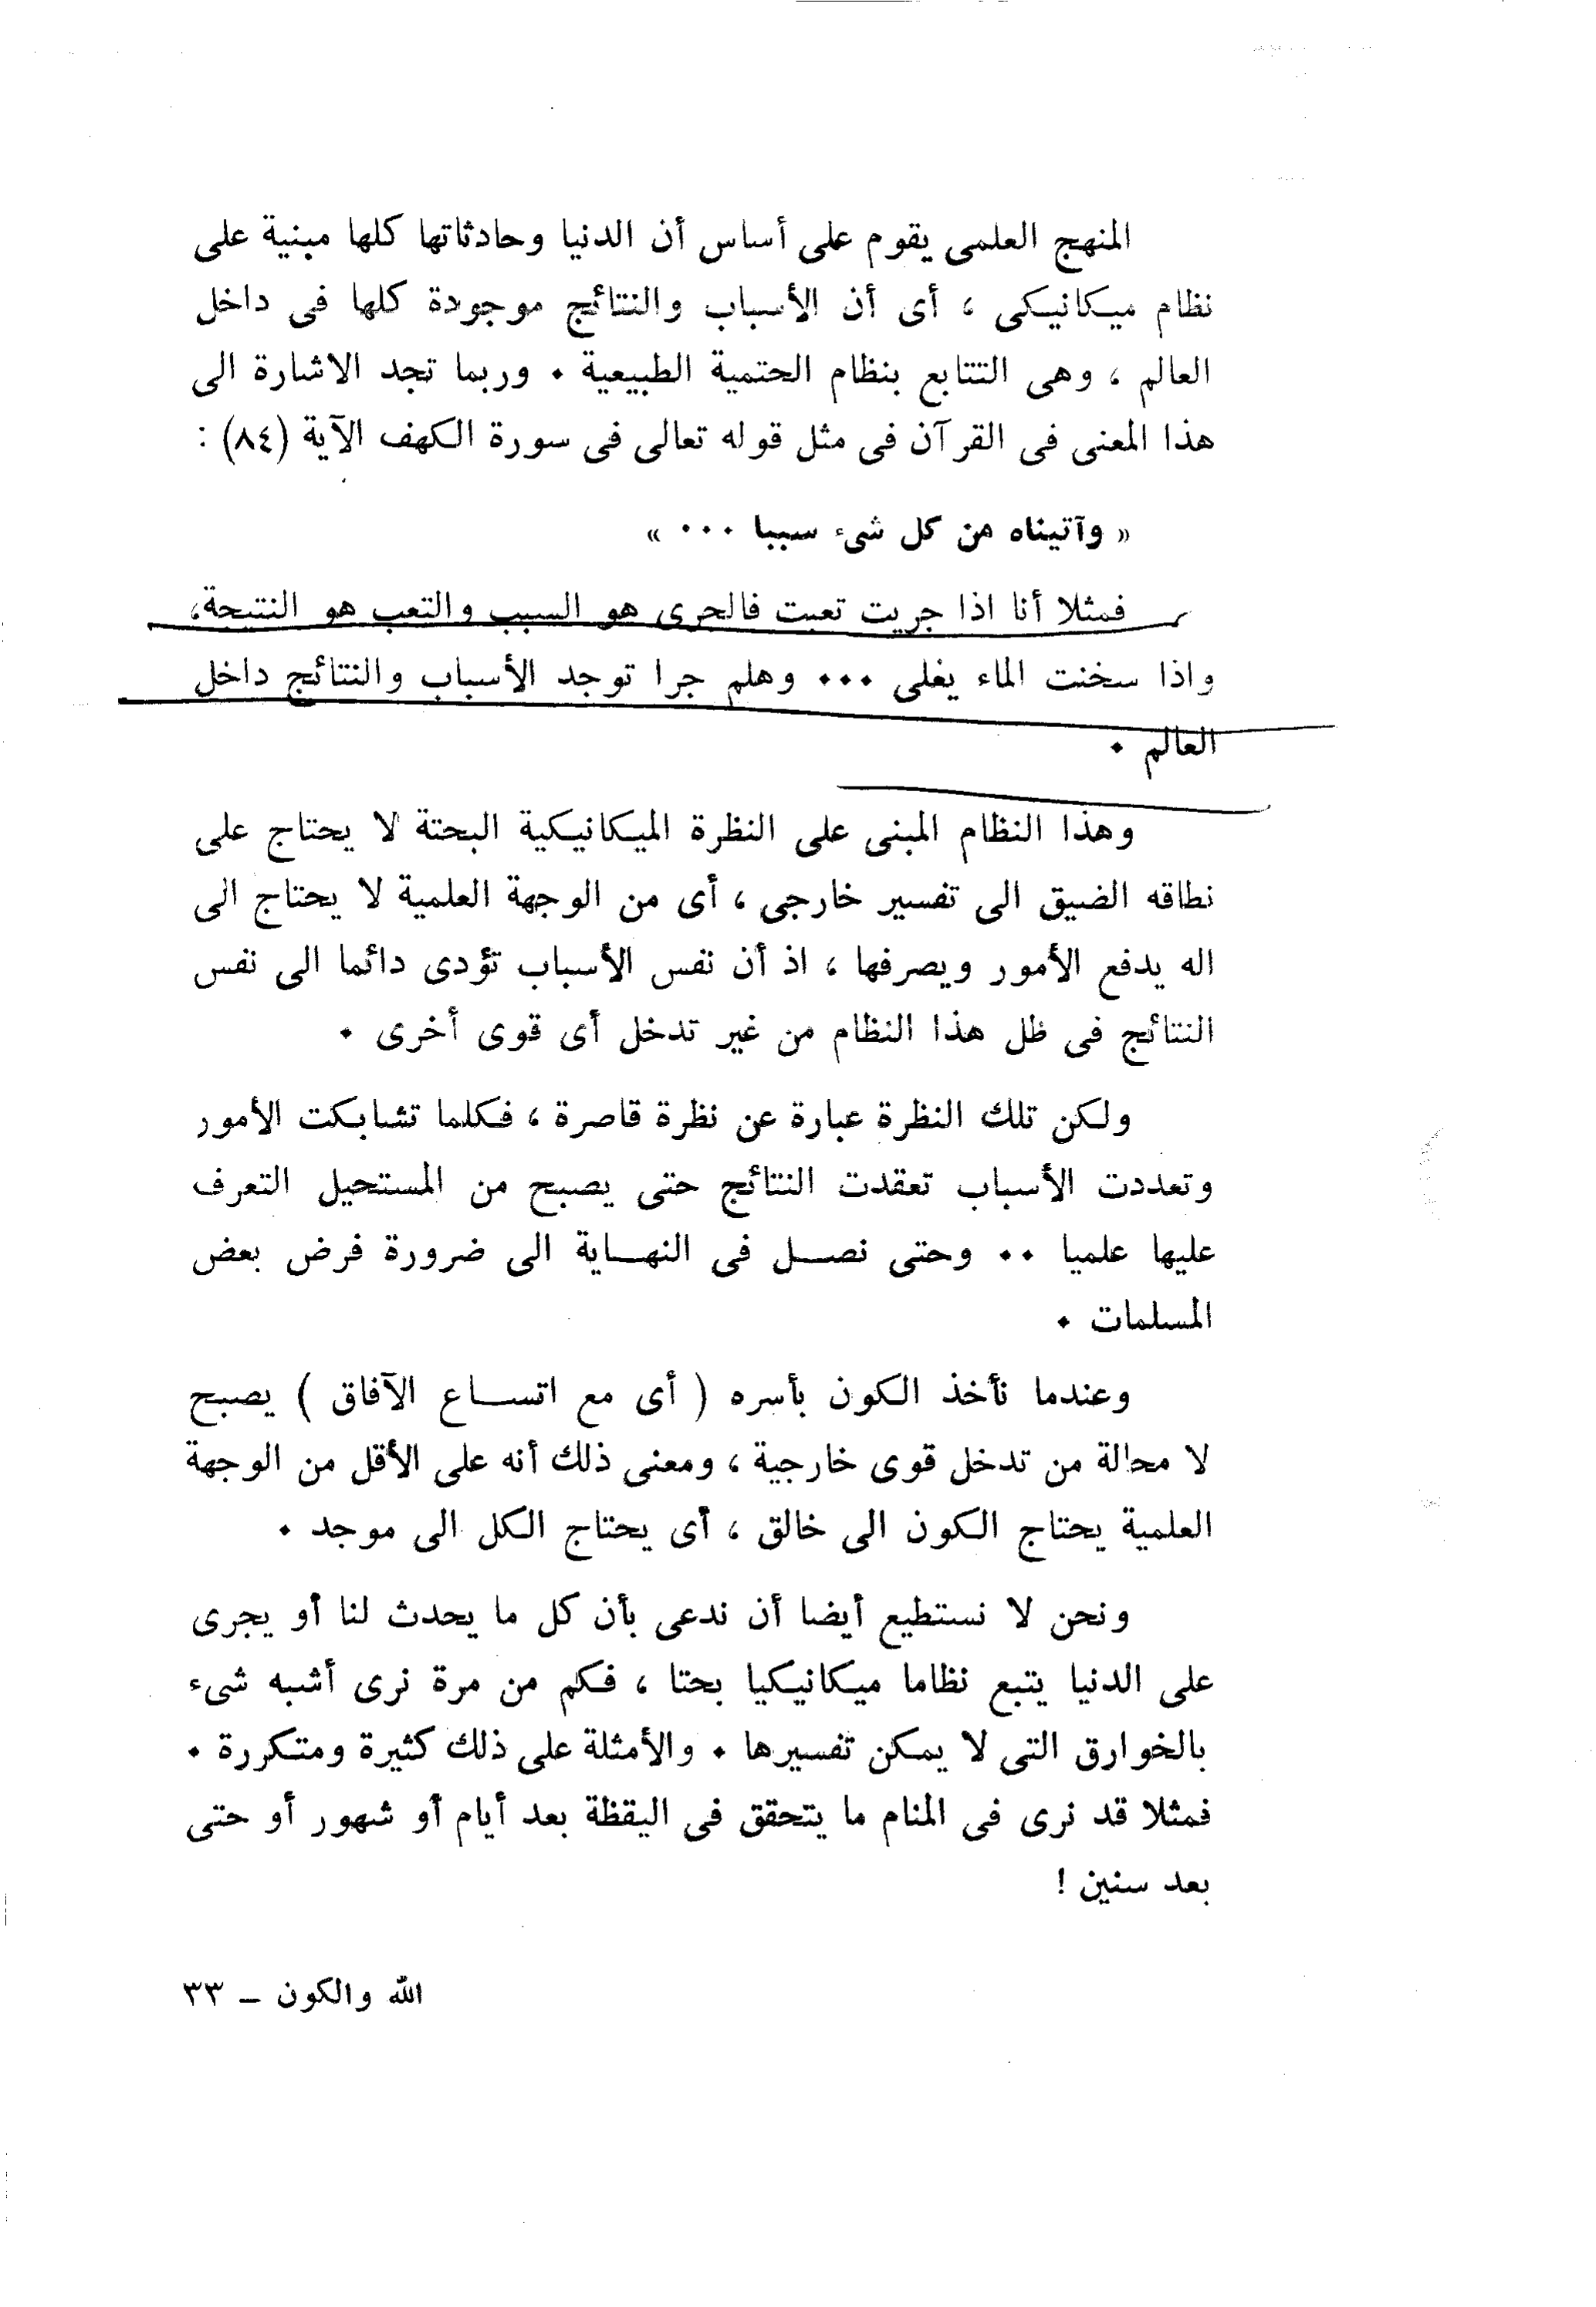 المنهج العلمى يقوم على أساس أن الدنيا وحادثاتها كلها مبنية على
نظام ميكانيكى ، أى أن الأسباب والنتائج موجودة كلها فى داخل
العالم ، وهى التتابع بنظام الحتمية الطبيعية ٠ وربما تجد الاشارة الى
هذا المعنى فى القرآن فى مثل قوله تعالى فى سورة الكهف الآية (٨٤) :
« وآتيناه من كل شىء سببا ٠٠٠ »
فمثلا أنا اذا جريت تعبت فالجرى هو السبب والتعب هو النتيجة،
واذا سخنت الماء يغلى ٠٠٠ وهلم جرا توجد الأسباب والنتائج داخل
العالم ٠
وهذا النظام المبنى على النظرة الميكانيكية البحتة لا يحتاج على
نطاقه الضيق الى تفسير خارجى ، أى من الوجهة العلمية لا يحتاج الى
اله يدفع الأمور ويصرفها ، اذ أن نفس الأسباب تؤدى دائما الى نفس
النتائج فى ظل هذا النظام من غير تدخل أى قوى أخرى ٠
ولكن تلك النظرة عبارة عن نظرة قاصرة ، فكلما تشابكت الأمور
وتعددت الأسباب تعقدت النتائج حتى يصبح من المستحيل التعرف
عليها علميا ٠٠ وحتى نصل فى النهاية الى ضرورة فرض بعض
المسلمات ٠
وعندما نأخذ الكون بأسره ( أى مع اتساع الآفاق ) يصبح
لا محالة من تدخل قوى خارجية ، ومعنى ذلك أنه على الأقل من الوجهة
العلمية يحتاج الكون الى خالق ، أى يحتاج الكل الى موجد ٠
ونحن لا نستطيع أيضا أن ندعى بأن كل ما يحدث لنا أو يجرى
على الدنيا يتبع نظاما ميكانيكيا بحتا ، فكم من مرة نرى أشبه شىء
بالخوارق التى لا يمكن تفسيرها ٠ والأمثلة على ذلك كثيرة ومتكررة ٠
فمثلا قد نرى فى المنام ما يتحقق فى اليقظة بعد أيام أو شهور أو حتى
بعد سنين !
الله والكون - ٣٣